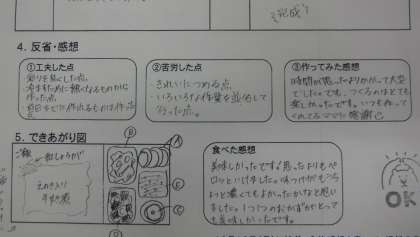 完成!
4. 反省・感想
①工夫した点
彩りを良くした点。
冷ますために熱くなるものから
作った点。
前日までに作れるものは作った
点
②苦労した点
・きれいにつめる点
・いろいろな作業を並行して
行った点。
③作ってみた感想
時間が思ったよりかかって大変
でした。でも、つくるのはとても
楽しかったです。いつも作って
くれてるママに感謝
5. できあがり図
ご飯
紅しょうが
B
A
C
E
D
食べた感想
美味しかったです。思ったよりもペ
ロッといけました。味つけがもうち
ょっと濃くてもよかったかなと思い
ました。1つ1つのおかずがとって
も美味しかったです。
OK